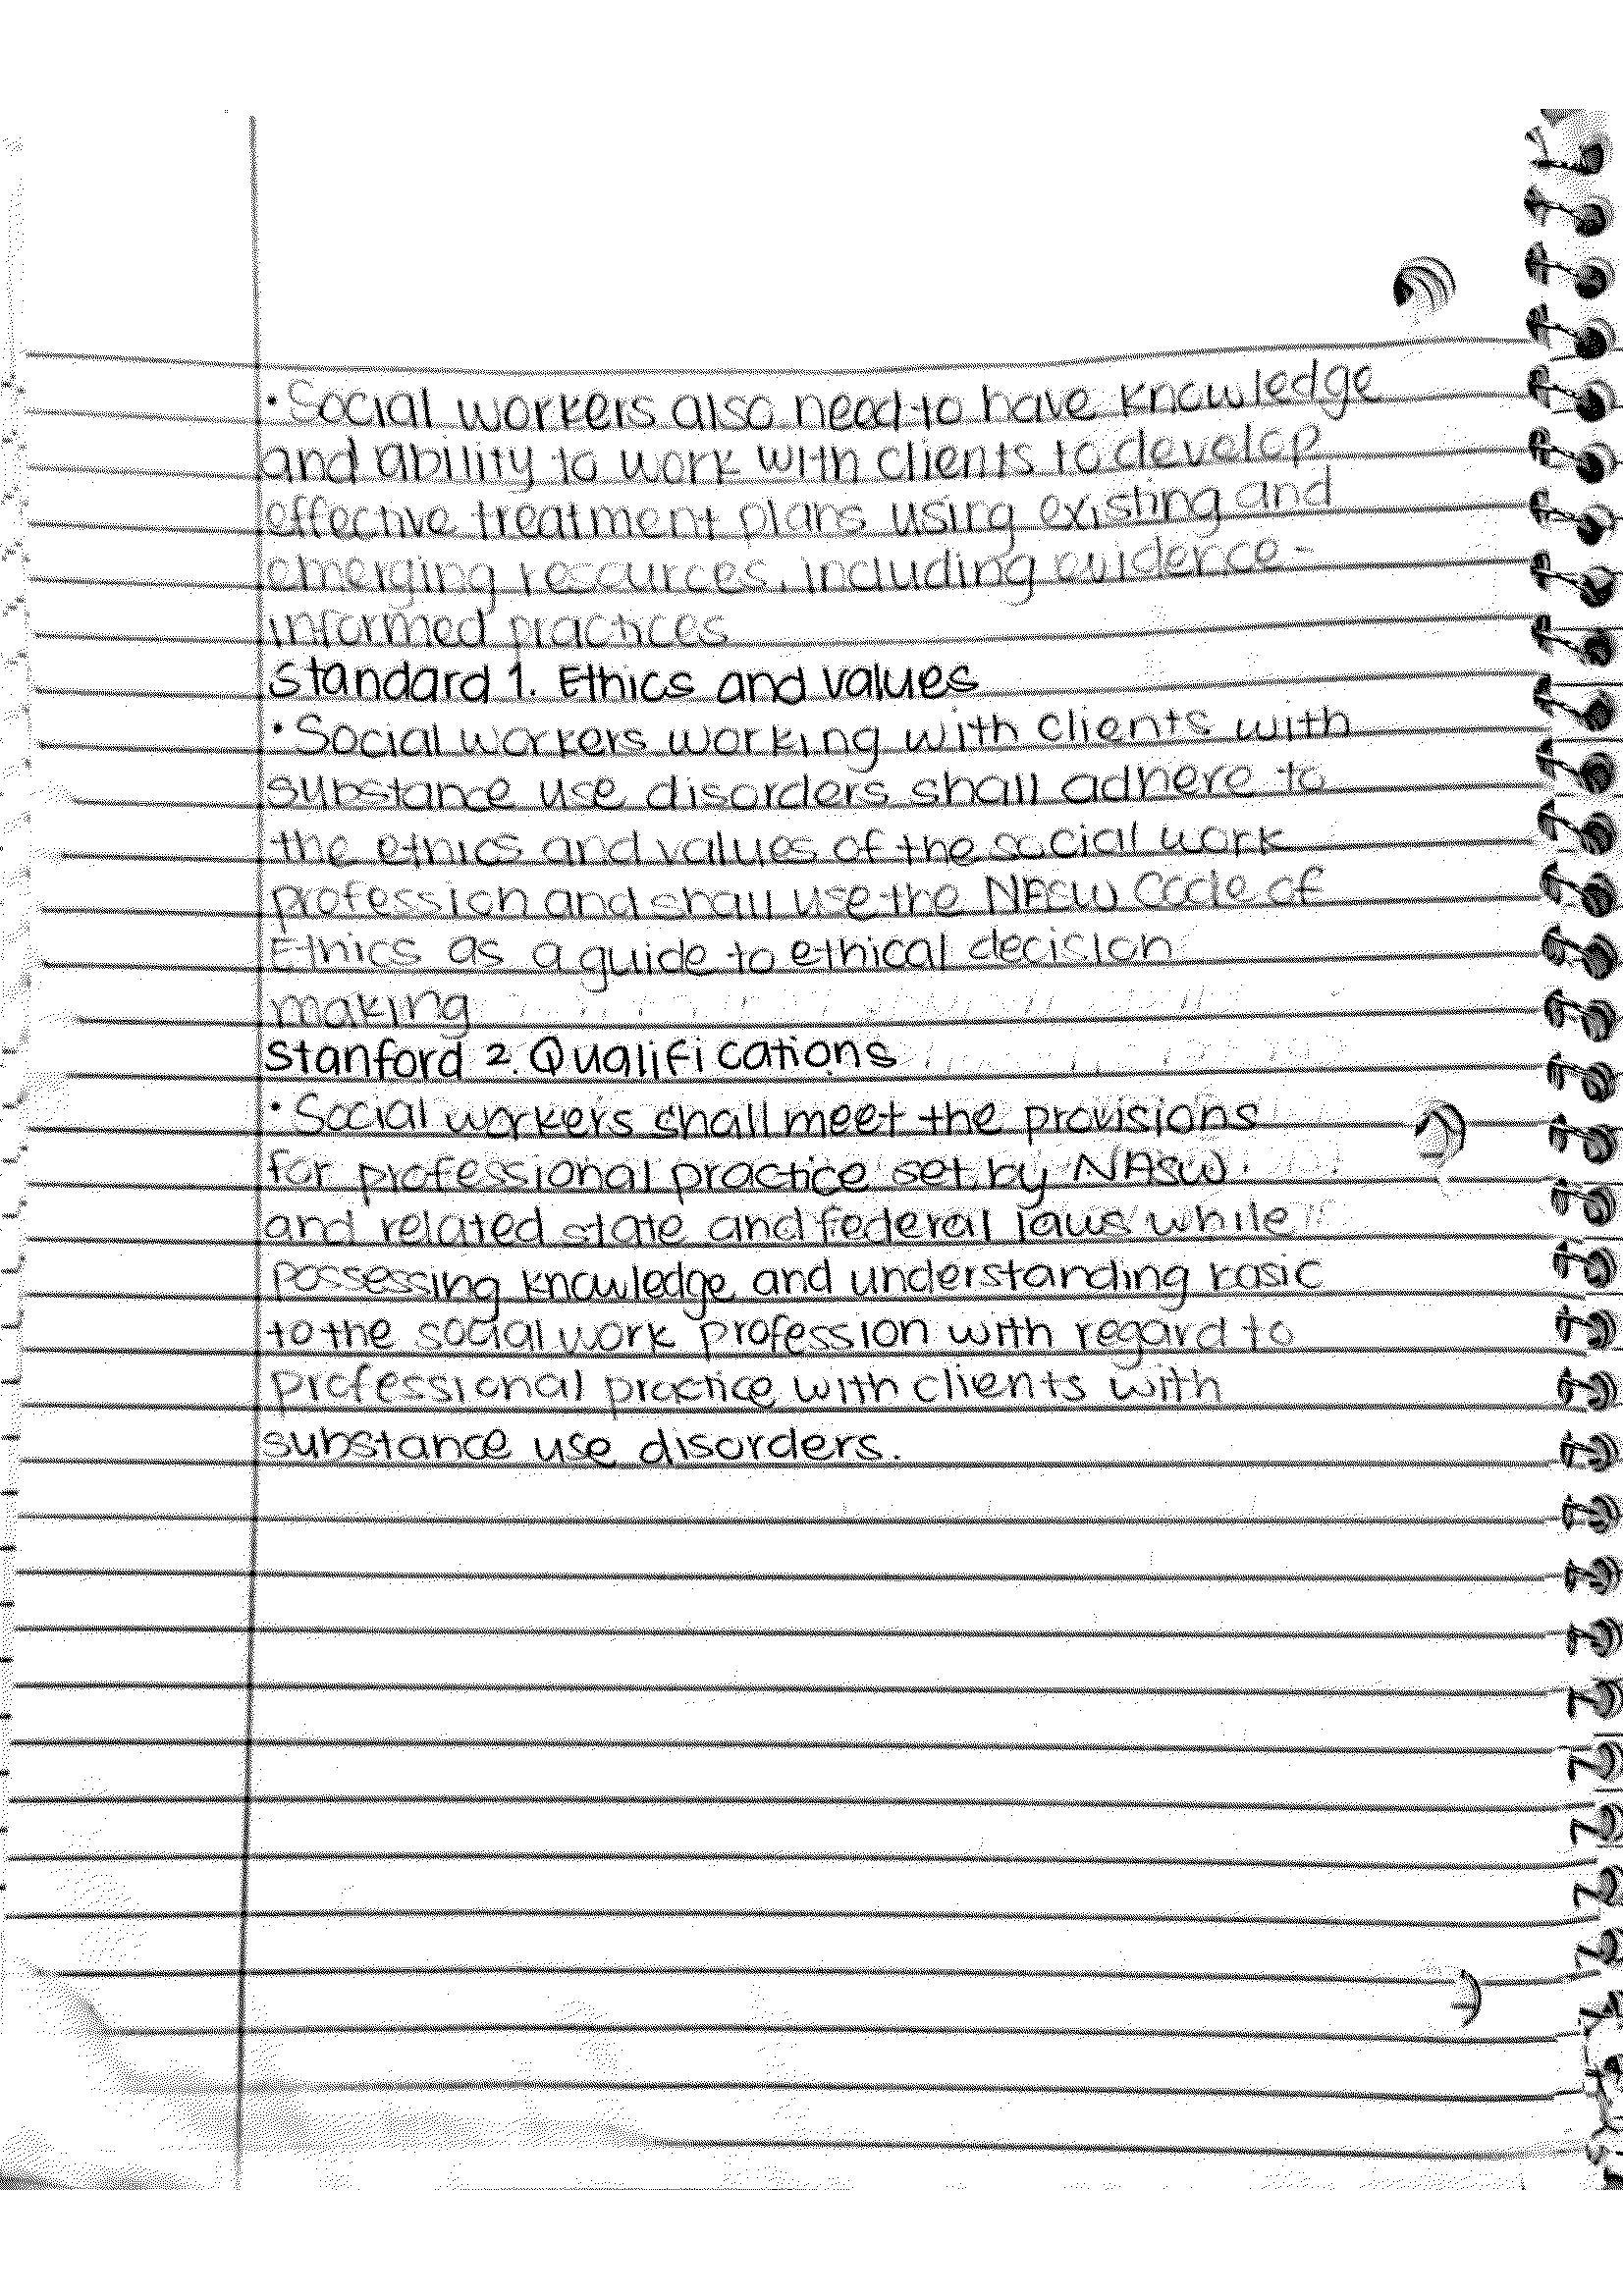 • Social workers also need to have knowledge
and ability to work with clients to develop
effective treatment plans using existing and
emerging resources, including evidence-
informed practices
Standard 1. Ethics and values
• Social workers working with clients with
substance use disorders shall adhere to
the ethics and values of the social work
profession and shall use the NASW Code of
Ethics as a guide to ethical decision
making
Stanford 2. Qualifications
• Social workers shall meet the provisions
for professional practice set by NASW
and related state and federal laws while
possessing knowledge and understanding basic
to the social work profession with regard to
professional practice with clients with
substance use disorders.